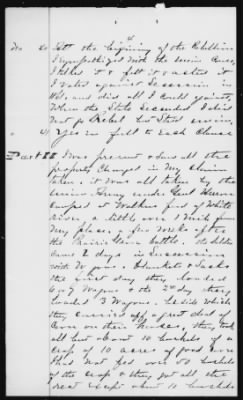 4
No 40 At the beginning of the Rebellion
I sympathized with the Union Cause,
I talked it & felt it & acted it
I voted against Secession in
and did all I could against
When the State Seceded I did
not go Rebel but Stood Union,
41 Yes in full to Each Clause
Part 88 I was present & Saw all the
property Charged in my claim
taken. it was all taken by the
Union Army under Genl
Camped at Walkers ferry of White
river, a little over 1 mile from
My place, a few weeks after
the Prairie Battle. the Soldiers
Came 2 days in Succession
with Wagons & Sacks
the first day they loaded
6 or 7 Wagons & the 2nd day they
loaded 3 Wagons. beside which
they carried off a great deal of
Corn on their horses, they took
all but about 10 bushels of a
crop of 10 acres of good Corn
I had not fed over 50 bushels
of the crop & they got all the
rest except about 10 bushels